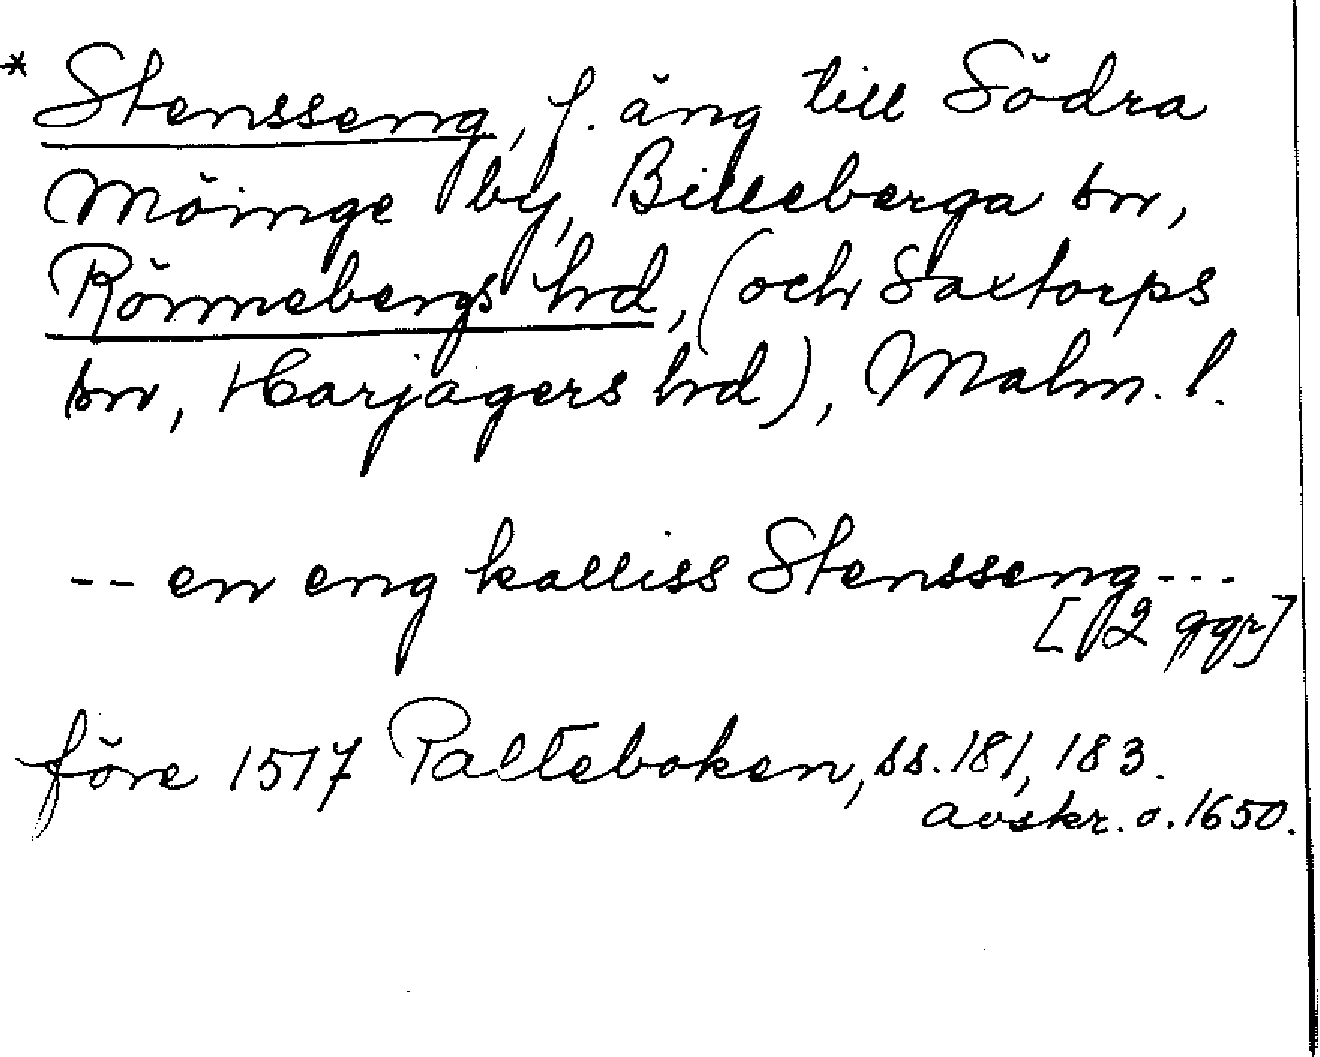 * Stensseng, f. äng till Södra
Möinge by, Billeberga sn,
Rönnebergs hrd, (och Saxtorps
sn, Harjagers hrd), Malm. l.
-- en eng kalliss Stensseng ---
[12 ggr]
före 1517 Palteboken, ss. 181, 183.
avskr. o. 1650.